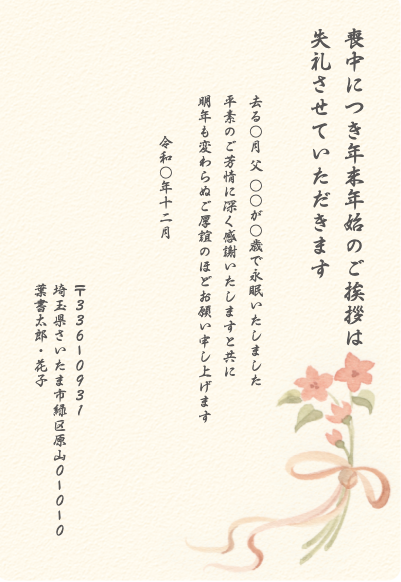 喪中につき年末年始のご挨拶は
失礼させていただきます
去る〇月 父 〇〇が〇歳で永眠いたしました
平素のご芳情に深く感謝いたしますと共に
明年も変わらぬご厚誼のほどお願い申し上げます
令和〇年十二月
〒336-0931
埼玉県さいたま市緑区原山0-1-0-1-0
葉書太郎・花子